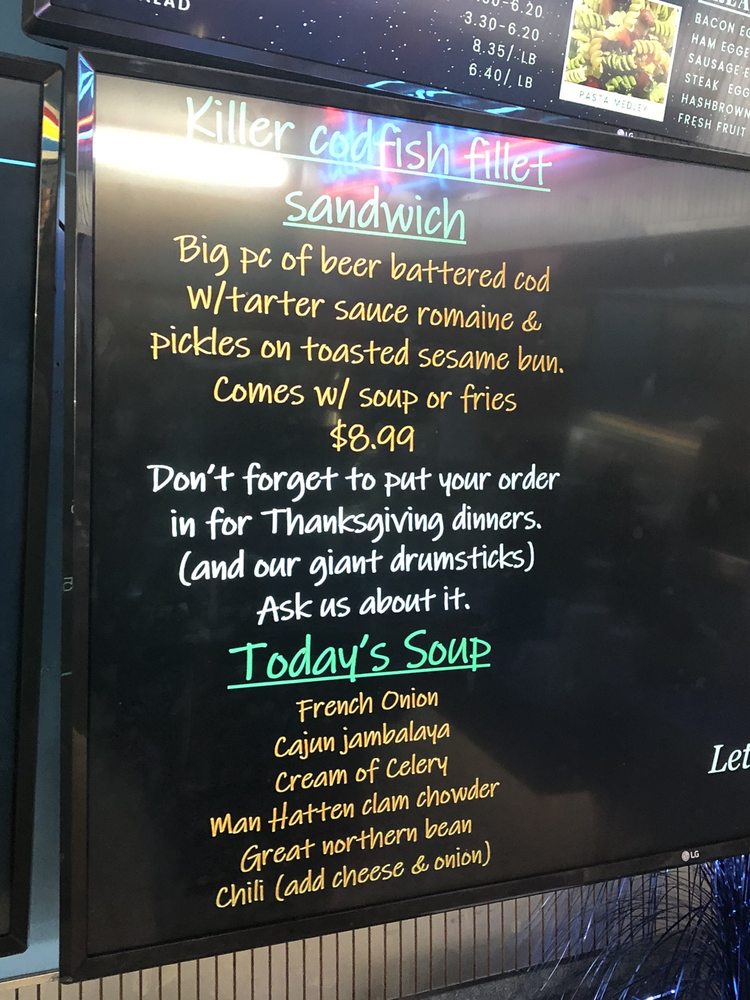 3.30-6.20
8.35/ LB
6.40/ LB
PASTA MEDLEY
BACON
HAM
SAUSAGE
STEAK
HASHBROWN
FRESH FRUIT
LG
Killer codfish fillet
sandwich
Big pc of beer battered cod
w/tarter sauce romaine &
pickles on toasted sesame bun.
Comes w/ soup or fries
$8.99
Don't forget to put your order
in for Thanksgiving dinners.
(and our giant drumsticks)
Ask us about it.
Today's Soup
French Onion
Cajun jambalaya
Cream of Celery
Man Hatten clam chowder
Great northern bean
Chili (add cheese & onion)
Let
LG